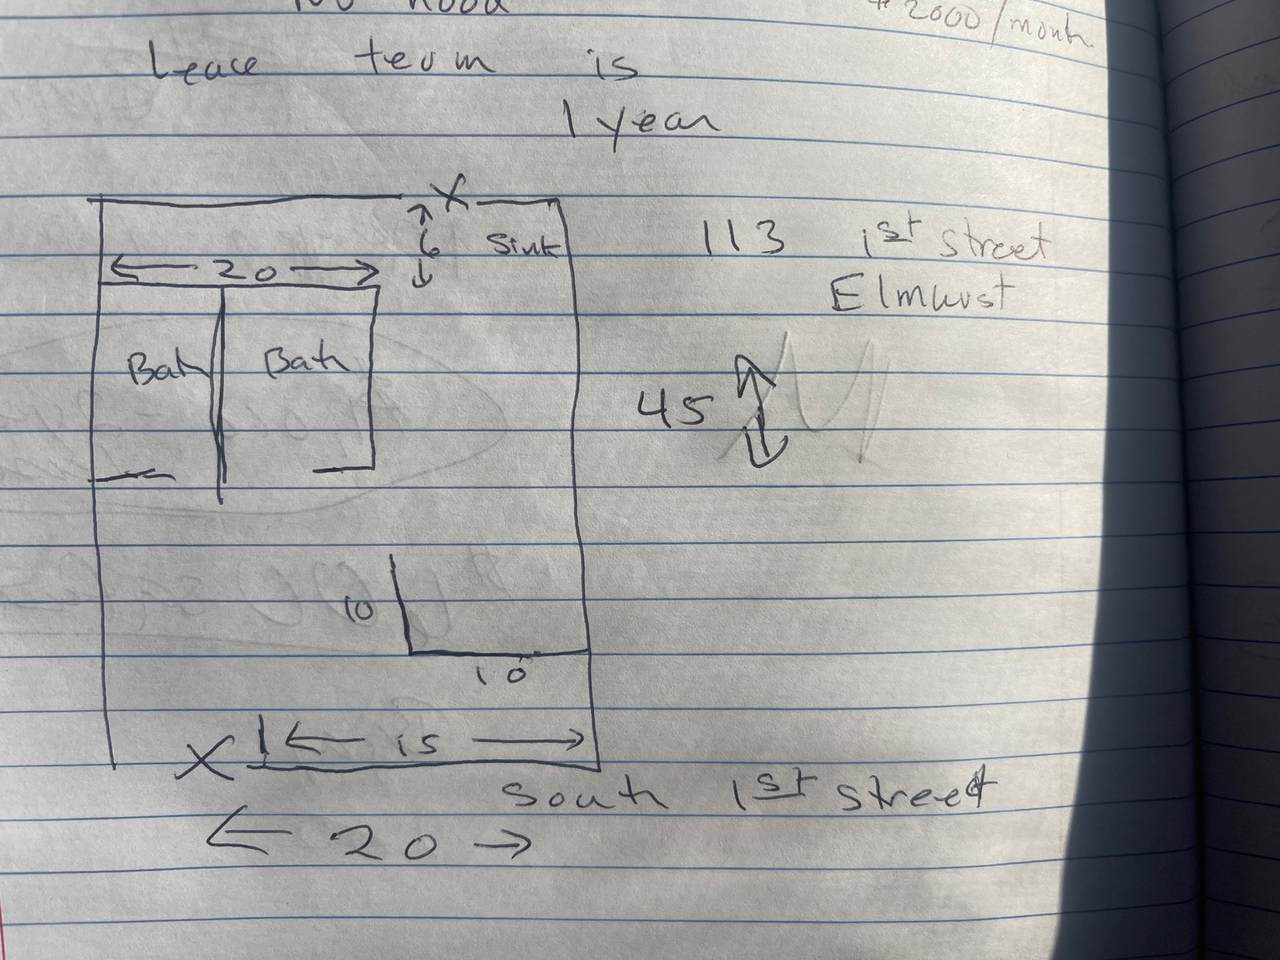 No hood
$2000/month
Leace term is
1 year
X
6 Sink
20
113 1st street
Elmhurst
Bath Bath
45
10
10
X 15
South 1st street
20